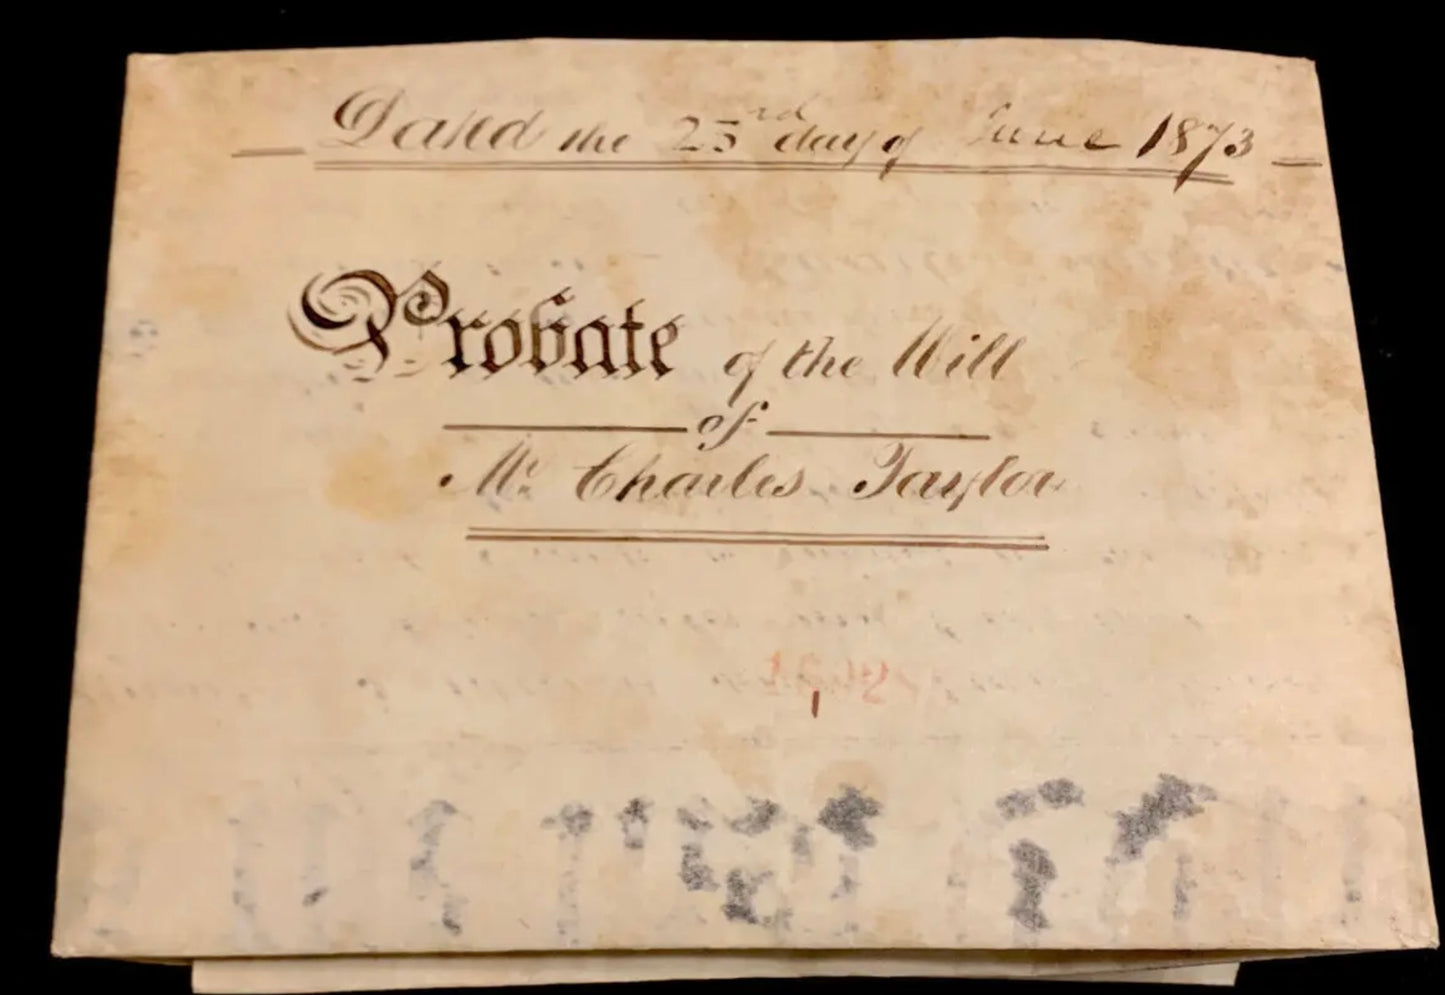 Dated the 23rd day of June 1873
Probate of the Will
of
Mr. Charles Taylor